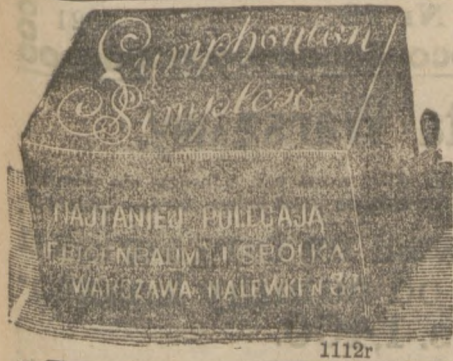 Symphonion
Simplex
NAJTANIEJ POLECAJĄ
I SPÓŁKA
WARSZAWA, NALEWKI
1112r